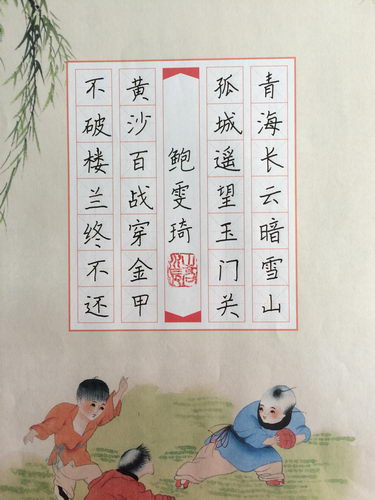 青海长云暗雪山
孤城遥望玉门关
鲍雯琦
黄沙百战穿金甲
不破楼兰终不还